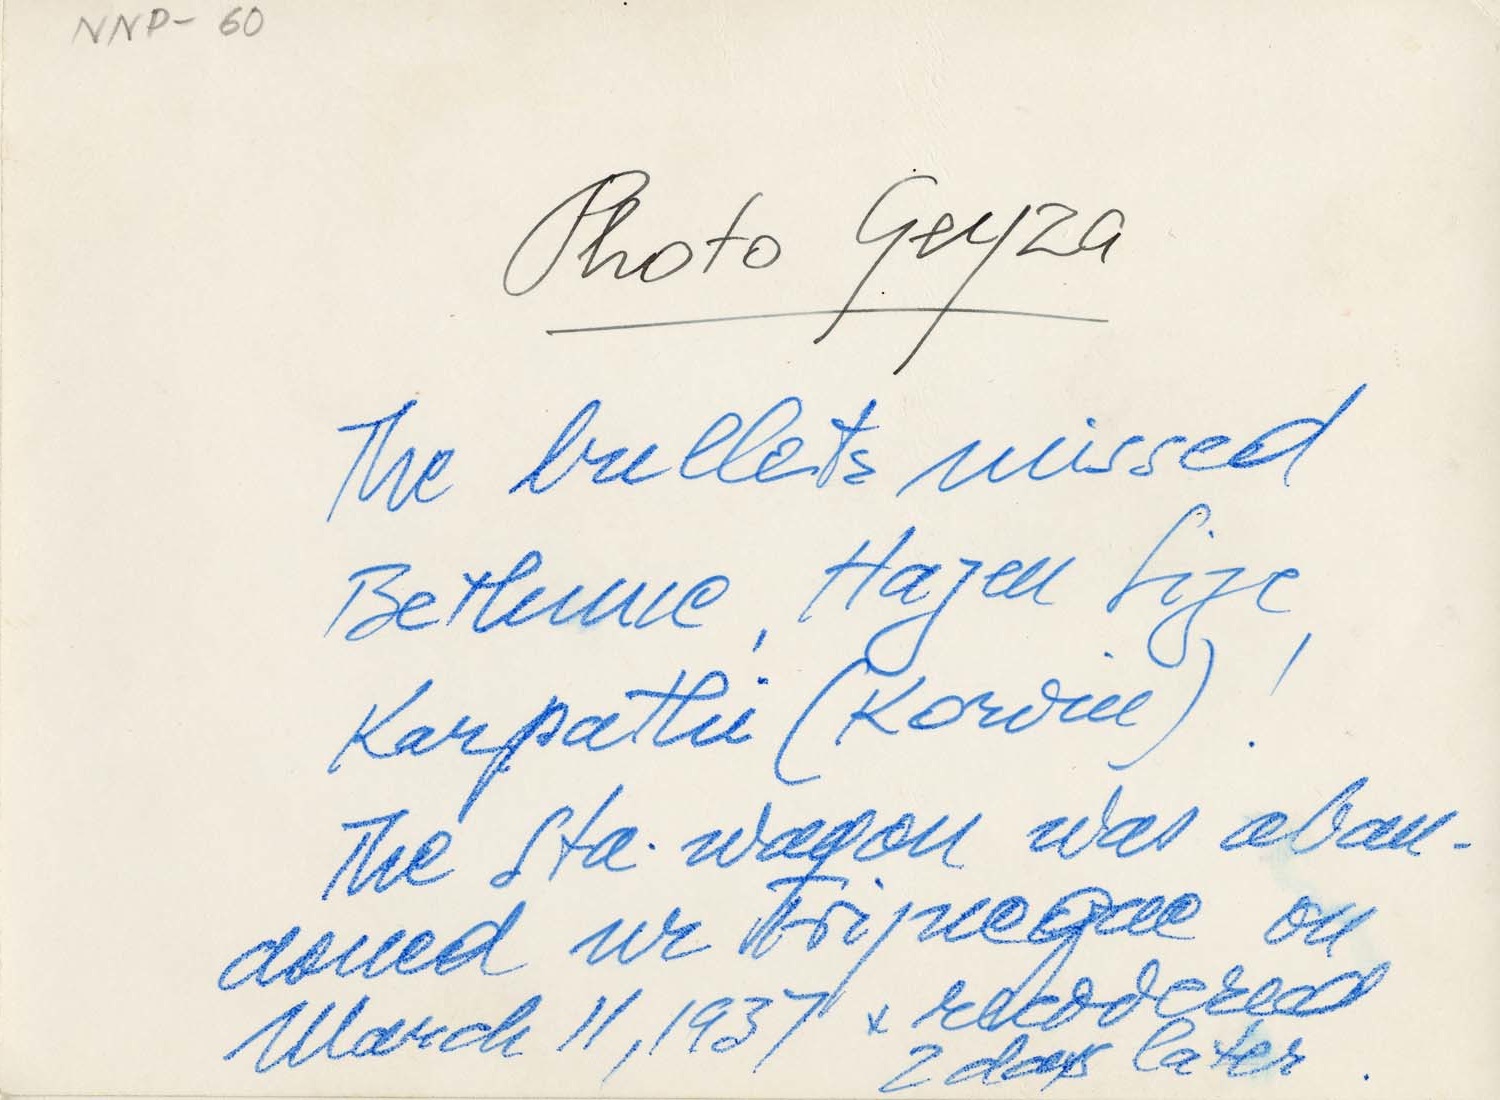 NNP- 60
Photo Geyza
The bullets missed
Bethune, Hazen Size,
Karpathi (Kordin)!
The Sta. wagon was aban-
doned nr on
March 11, 1937 + recovered
2 days later.